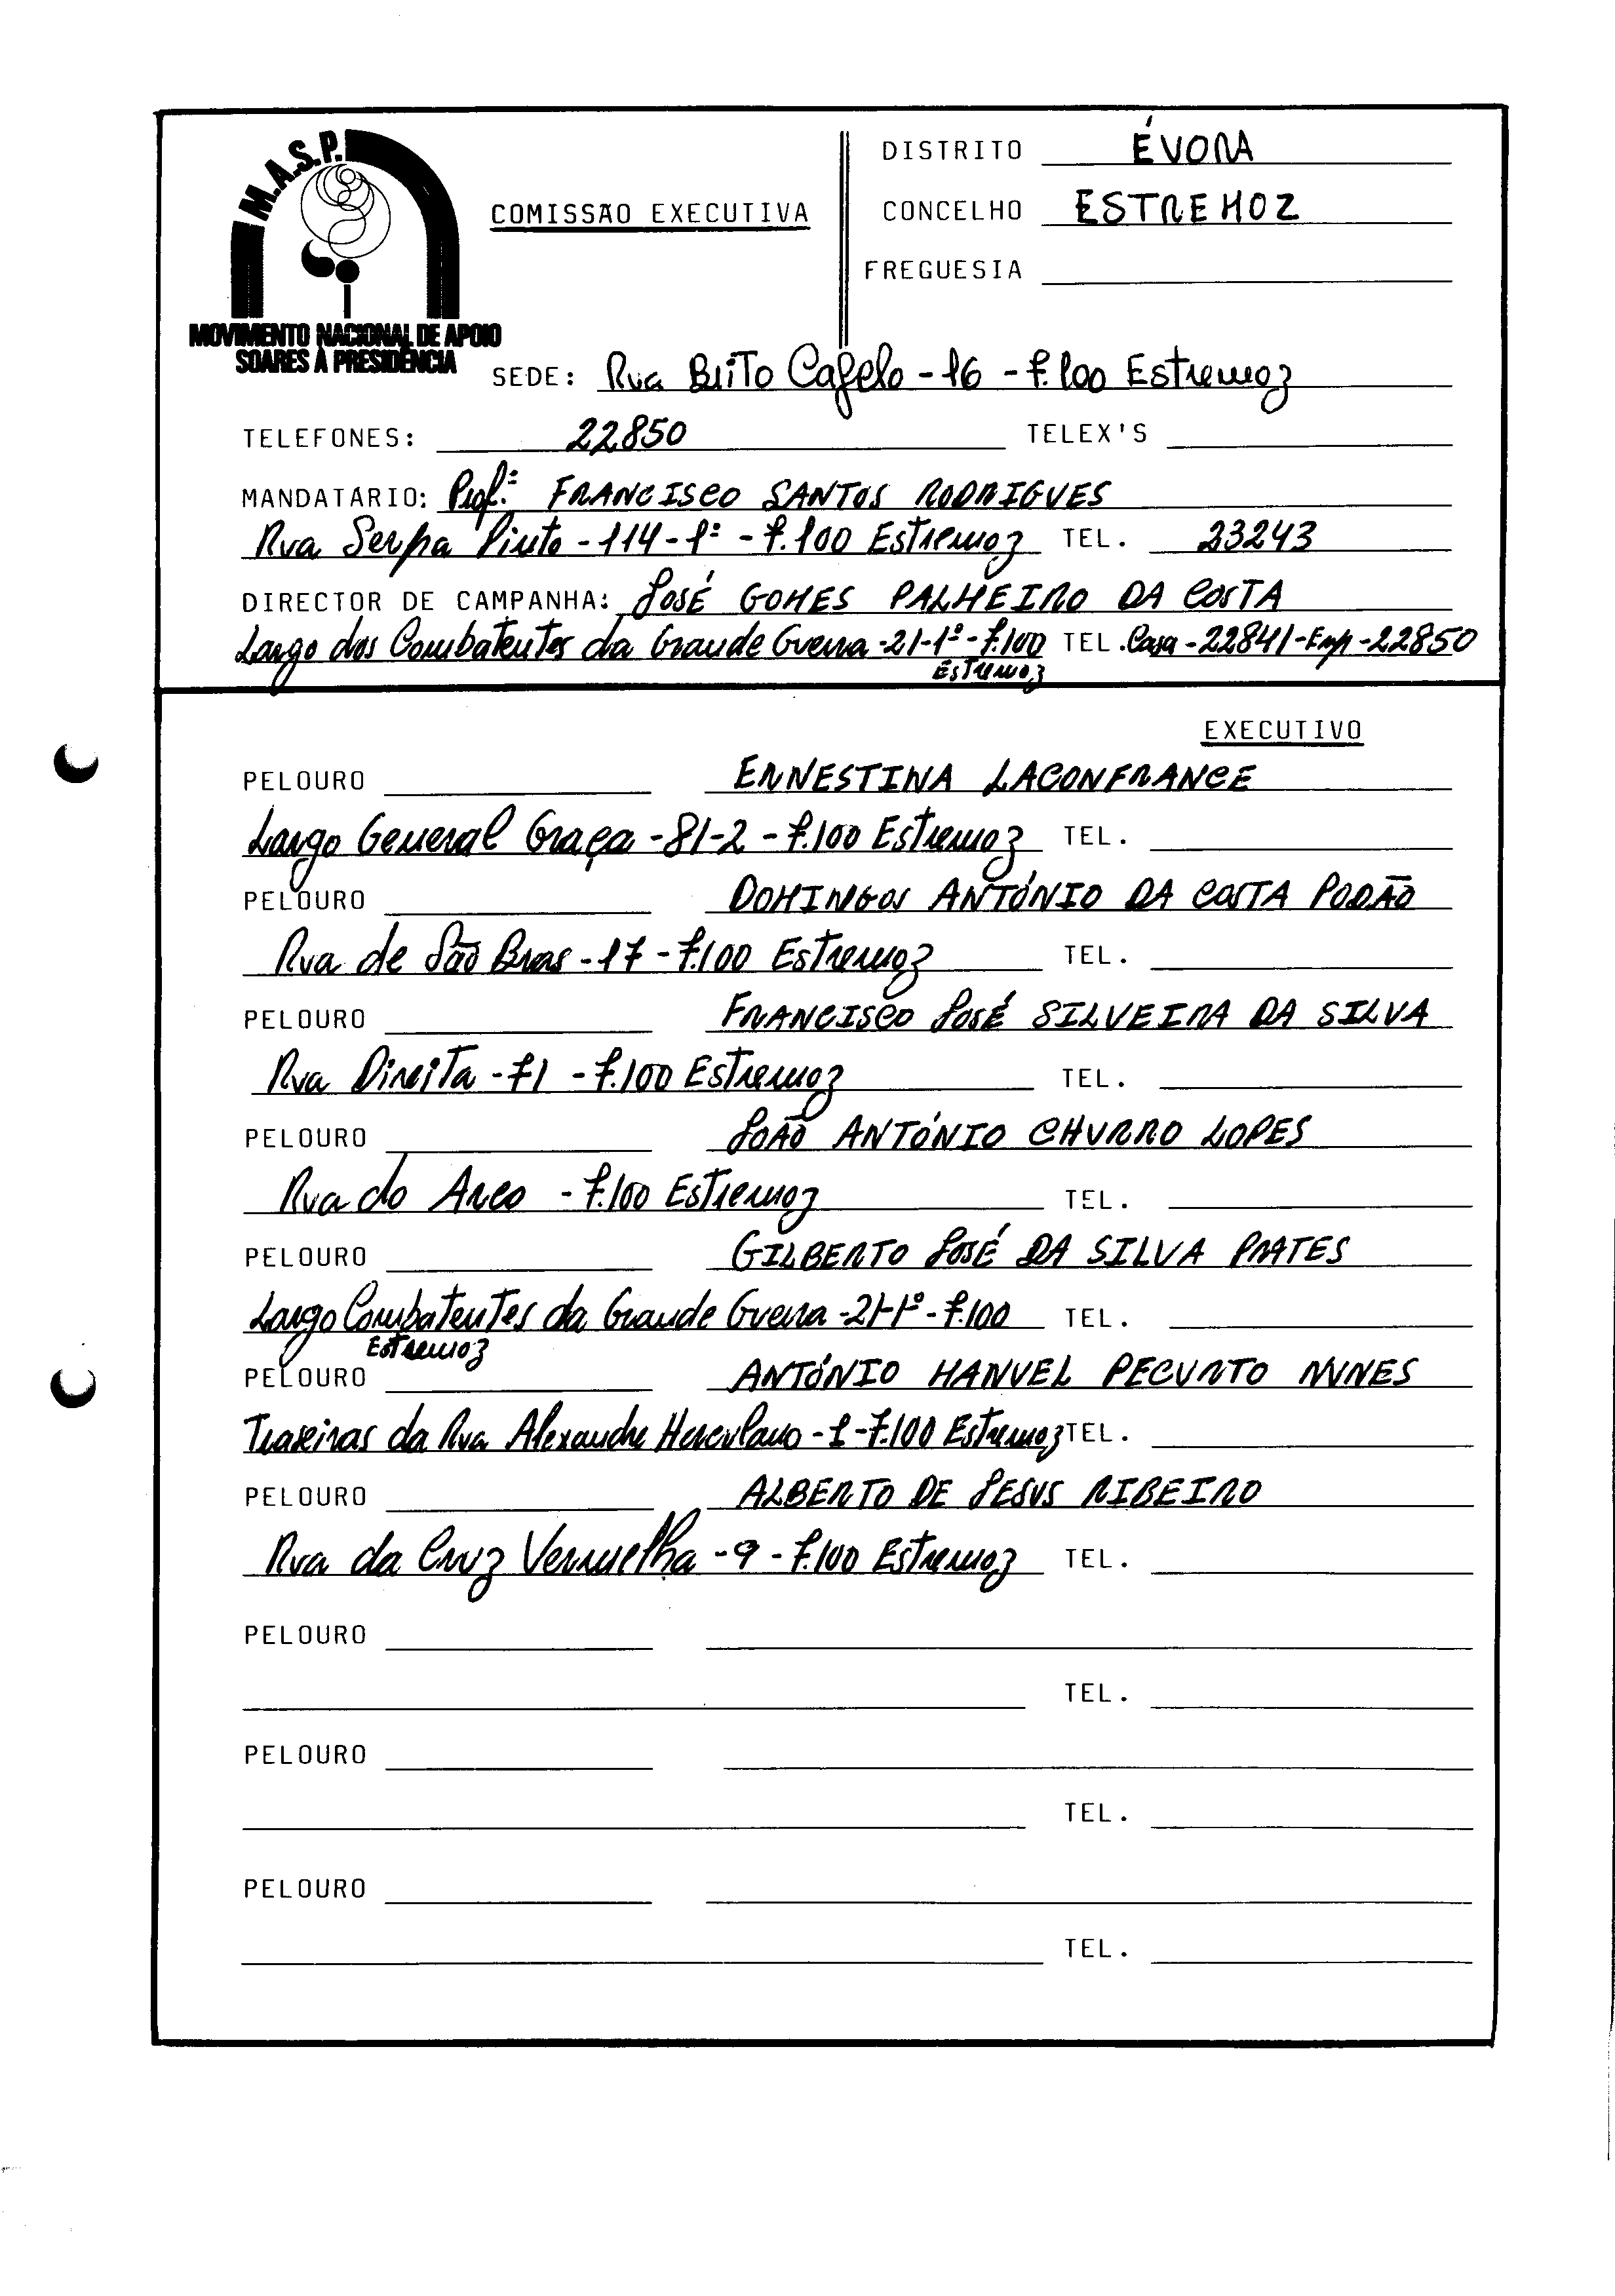 M.A.S.P.
MOVIMENTO NACIONAL DE APOIO
SOARES À PRESIDÊNCIA
COMISSÃO EXECUTIVA
DISTRITO ÉVORA
CONCELHO ESTREMOZ
FREGUESIA
SEDE: Rua Brito Capelo - 16 - 7.100 Estremoz
TELEFONES: 22850 TELEX'S
MANDATÁRIO: Prof.: FRANCISCO SANTOS RODRIGUES
Rua Serpa Pinto - 114 - 1º - 7.100 Estremoz TEL. 23243
DIRECTOR DE CAMPANHA: JOSÉ GOMES PALHEIRO DA COSTA
Largo dos Combatentes da Grande Guerra - 21-1º - 7.100 TEL. Casa - 22841 - Emp - 22850
Estremoz
EXECUTIVO
PELOURO ERNESTINA LACONFRANCE
Largo General Graça - 81-2 - 7.100 Estremoz TEL.
PELOURO DOMINGOS ANTÓNIO DA COSTA PODÃO
Rua de São Bras - 17 - 7.100 Estremoz TEL.
PELOURO FRANCISCO JOSÉ SILVEIRA DA SILVA
Rua Direita - 71 - 7.100 Estremoz TEL.
PELOURO JOÃO ANTÓNIO CHURRO LOPES
Rua do Arco - 7.100 Estremoz TEL.
PELOURO GILBERTO JOSÉ DA SILVA PRATES
Largo Combatentes da Grande Guerra - 21-1º - 7.100 TEL.
Estremoz
PELOURO ANTÓNIO MANUEL PECURTO NUNES
Traseiras da Rua Alexandre Herculano - 1 - 7.100 Estremoz TEL.
PELOURO ALBERTO DE JESUS RIBEIRO
Rua da Cruz Vermelha - 9 - 7.100 Estremoz TEL.
PELOURO
TEL.
PELOURO
TEL.
PELOURO
TEL.